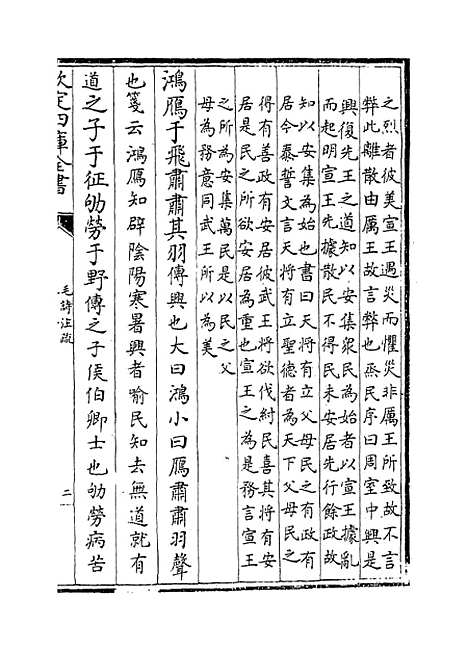 之烈者彼美宣王遇災而懼災非厲王所致故不言
弊此離散由厲王故言弊也烝民序曰周室中興是
興復先王之道知以安集衆民為始者以宣王據亂
而起明宣王先據散民不得民未安居先行餘政故
知以安集為始也書曰天將有立父母民之有政有
居今泰誓文言天將有立聖德者為天下父母民之
得有善政有安居彼武王將欲伐紂民喜其將有安
居是民之所欲安居為重也宣王之為是務言宣王
之所為安集萬民是以民之父
母為務意同武王所以為美
鴻鴈于飛肅肅其羽傳興也大曰鴻小曰鴈肅肅羽聲
也箋云鴻鴈知辟陰陽寒暑興者喻民知去無道就有
道之子于征劬勞于野傳之子侯伯卿士也劬勞病苦
欽定四庫全書
毛詩注疏
二